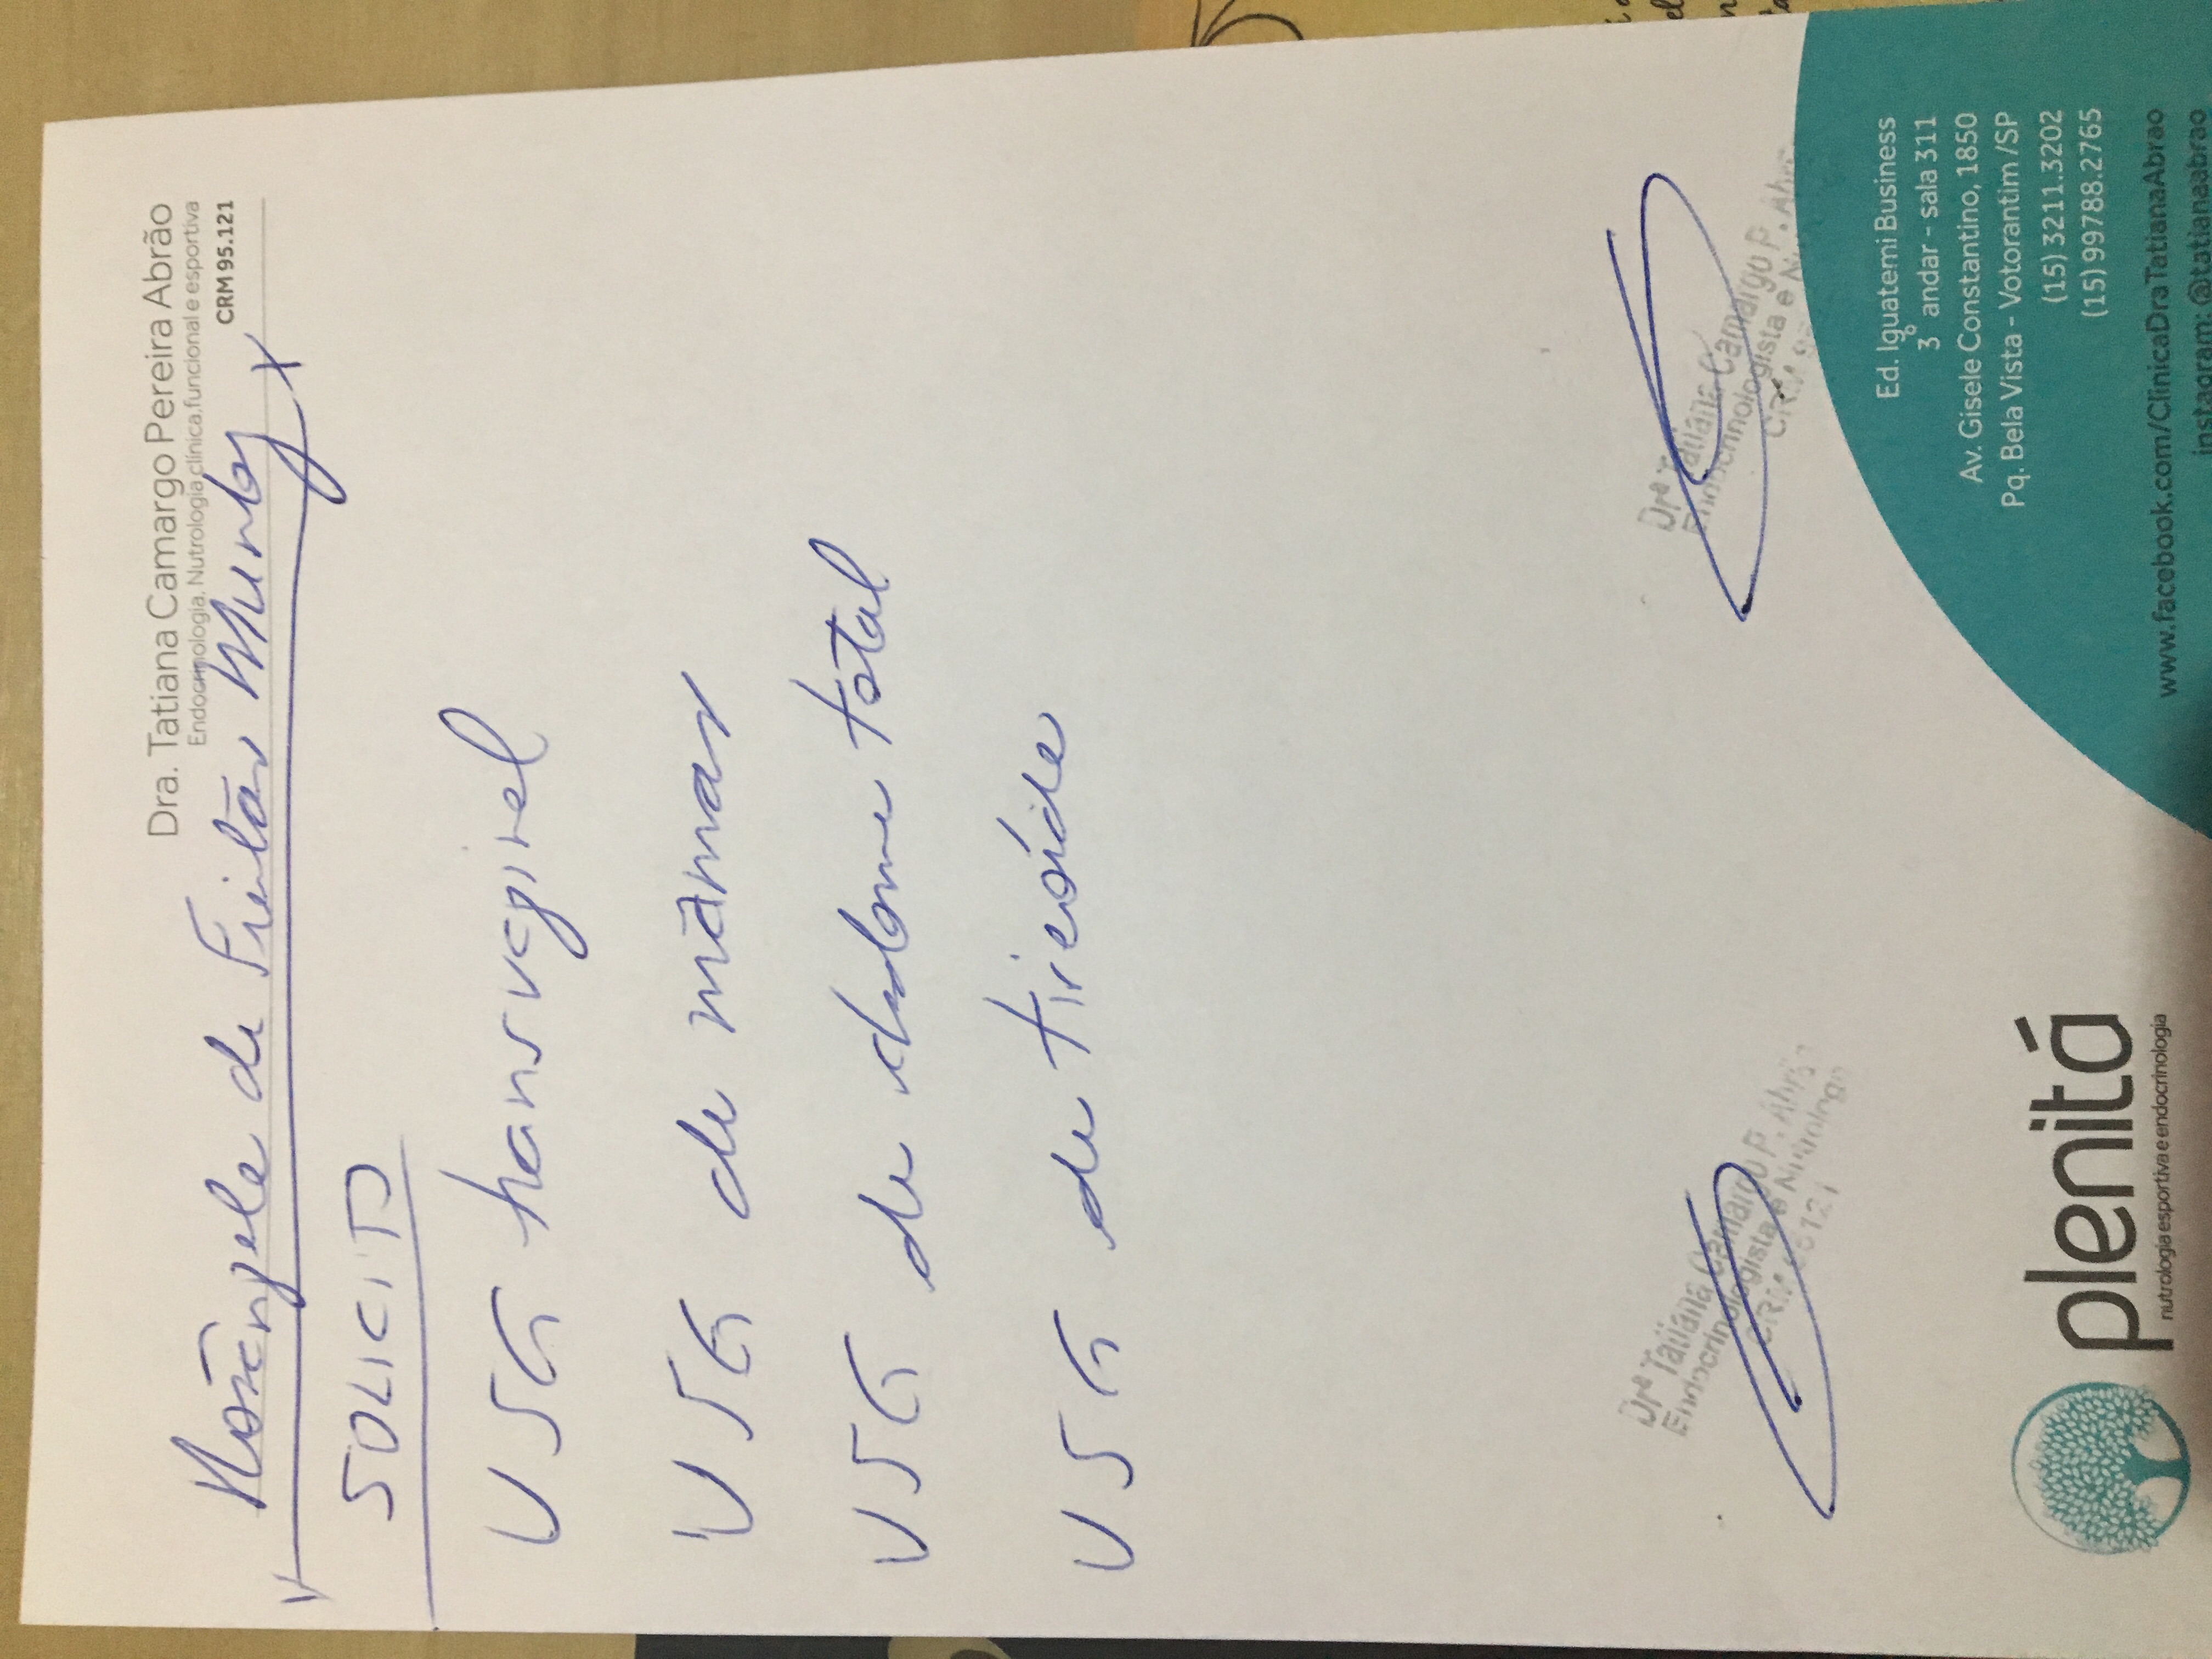 Dra. Tatiana Camargo Pereira Abrão
Endocrinologia, Nutrologia clínica, funcional e esportiva
CRM 95.121
Rosângela de Freitas
SOLICITO
USG transvaginal
USG de mamas
USG de abdome total
USG de tireóide
Drª Tatiana Camargo P. Abrão
Endocrinologista e Nutrologa
CRM 95121
Drª Tatiana Camargo P. Abrão
Endocrinologista e
CRM
Ed. Iguatemi Business
3° andar - sala 311
Av. Gisele Constantino, 1850
Pq. Bela Vista - Votorantim /SP
(15) 3211.3202
(15) 99788.2765
www.facebook.com/ClinicaDraTatianaAbrao
instagram: @tatianaabrao
plenitá
nutrologia esportiva e endocrinologia